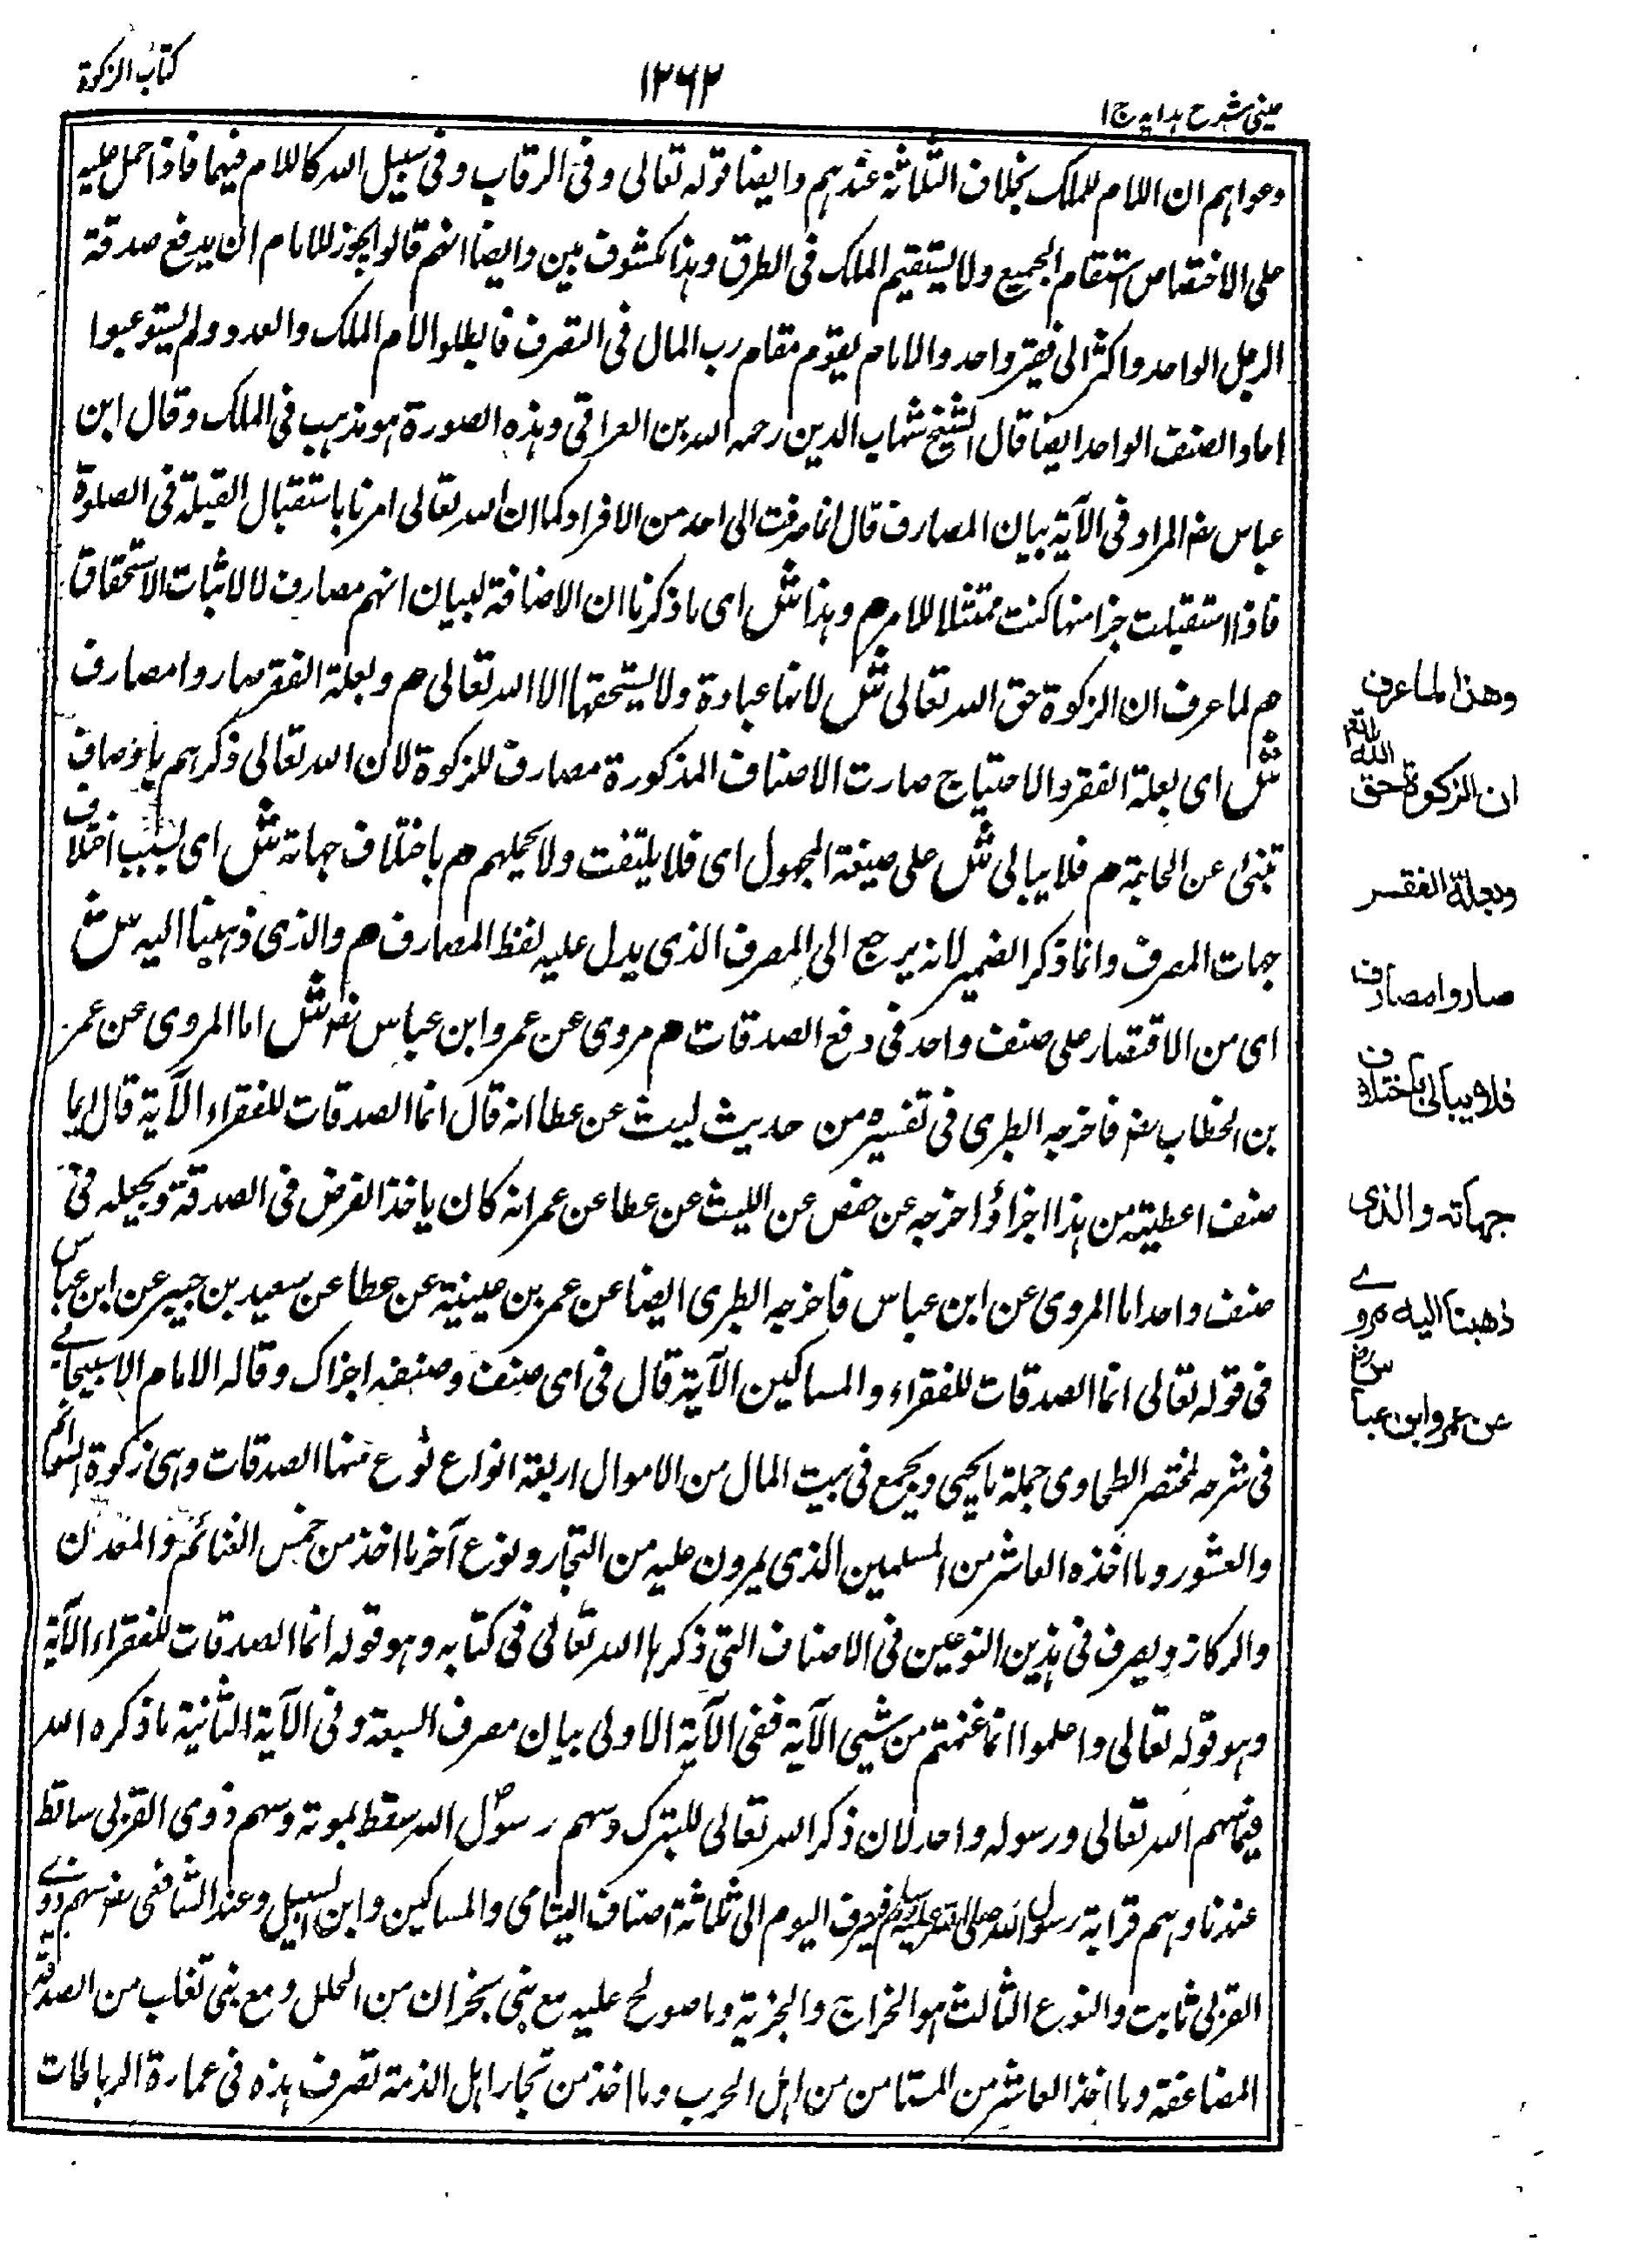 عينى شرح هدايه ج ١
١٢٦٢
كتاب الزكوة
دعواهم ان اللام للملك بخلاف الثلاثة عندهم وايضا قوله تعالى وفى الرقاب وفى سبيل الله كاللام فيهما فاذا حمل عليه
على الاختصاص استقام الجميع ولا يستقيم الملك فى الطرق وهذا مكشوف بين وايضا انهم قالوا يجوز للامام ان يدفع صدقة
الرجل الواحد واكثر الى فقير واحد والامام يقوم مقام رب المال فى التصرف فابطلوا لام الملك والعدد ولم يستوعبوا
احاد الصنف الواحد ايضا قال الشيخ شهاب الدين رحمه الله بن العراقى وهذه الصورة هو مذهب فى الملك وقال ابن
عباس رض المراد فى الآية بيان المصارف قال انما صرفت الى احد من الافراد كما ان الله تعالى امرنا باستقبال القبلة فى الصلوة
فاذا استقبلت جزا منها كنت ممتثلا للامر م وهذا ش اى ما ذكرنا ان الاضافة لبيان انهم مصارف لا لاثبات الاستحقاق
م لما عرف ان الزكوة حق الله تعالى ش لانها عبادة ولا يستحقها الا الله تعالى م وبعلة الفقر صاروا مصارف
ش اى بعلة الفقر والاحتياج صارت الاصناف المذكورة مصارف للزكوة لان الله تعالى ذكرهم باوصاف
تبنئ عن الحاجة م فلا يبالى ش على صيغة المجهول اى فلا يلتفت ولا يحملهم م باختلاف جهاته ش اى بسبب اختلاف
جهات المصرف وانما ذكر الضمير لانه يرجع الى المصرف الذى يدل عليه لفظ المصارف م والذى ذهبنا اليه ش
اى من الاقتصار على صنف واحد فى دفع الصدقات م مروى عن عمر وابن عباس رض ش اما المروى عن عمر
بن الخطاب رض فاخرجه الطبرى فى تفسيره من حديث ليث عن عطا انه قال انما الصدقات للفقراء الآية قال ايما
صنف اعطيته من هذا اجزاؤ اخرجه عن حفص عن الليث عن عطا عن عمر انه كان ياخذ الفرض فى الصدقة ويجعله فى
صنف واحد اما المروى عن ابن عباس فاخرجه الطبرى ايضا عن عمر بن عيينة عن عطا عن سعيد بن جبير عن ابن عباس
فى قوله تعالى انما الصدقات للفقراء والمساكين الآية قال فى اى صنف وضعفه اجزاك وقاله الامام الاسبيجابے
فى شرحه لمختصر الطحاوى جملة ما يحيى ويجمع فى بيت المال من الاموال اربعة انواع نوع منها الصدقات وهى زكوة السوائم
والعشور وما اخذه العاشر من المسلمين الذى يمرون عليه من التجار ونوع آخر ما اخذ من خمس الغنائم والمعدن
والركاز ويصرف فى هذين النوعين فى الاصناف التى ذكرها الله تعالى فى كتابه وهو قوله انما الصدقات للفقراء الآية
وهو قوله تعالى واعلموا انما غنمتم من شيى الآية ففى الآية الاولى بيان مصرف السبعة وفى الآية الثانية ما ذكره الله
فيها سهم الله تعالى ورسوله واحد لان ذكر الله تعالى للتبرك وسهم رسول الله سقط بموته وسهم ذوى القربى ساقط
عندنا وهم قرابة رسول الله صلى الله عليه وسلم فيصرف اليوم الى ثلاثة اصناف اليتامى والمساكين وابن السبيل وعند الشافعى رض سهم ذوے
القربى ثابت والنوع الثالث هو الخراج والجزية وما صولح عليه مع بنى نجران من الحلل ومع بنى تغلب من الصدقة
المضاعفة وما اخذ العاشر من المستامن من اهل الحرب وما اخذ من تجار اهل الذمة تصرف هذه فى عمارة الرباطات
وهذا لما عرف
ان الزكوة حق الله
وبعلة الفقر
صاروا مصارف
فلا يبالى باختلاف
جهاته والذى
ذهبنا اليه مروے
عن عمر وابن عباس رض